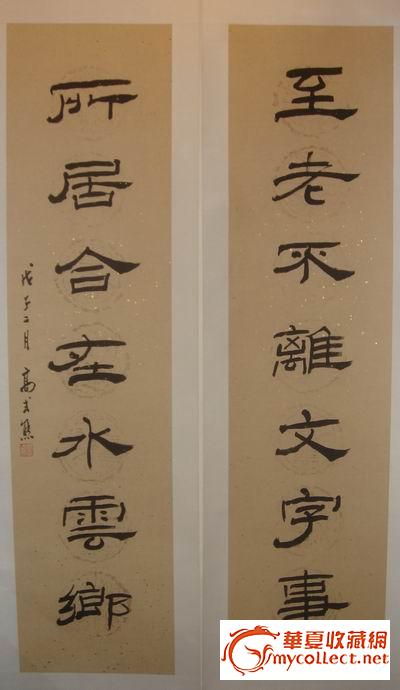 至老不離文字事
所居合在水雲鄉
戊子二月 高式熊
華夏收藏網
mycollect.net